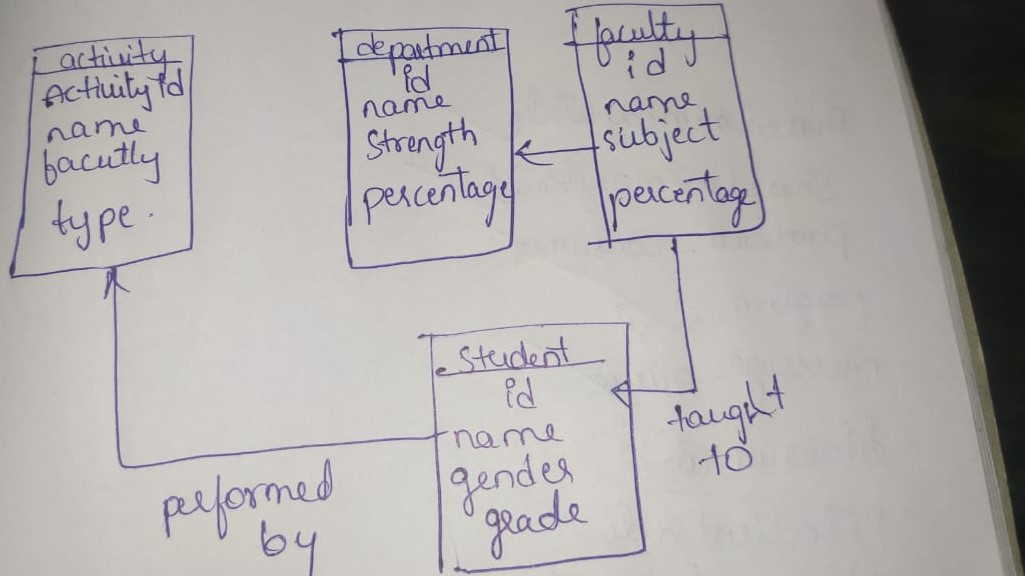 activity
Activity id
name
bacutly
type.
department
id
name
Strength
percentage
faculty
id
name
subject
percentage
student
id
name
gender
grade
taught
to
performed
by